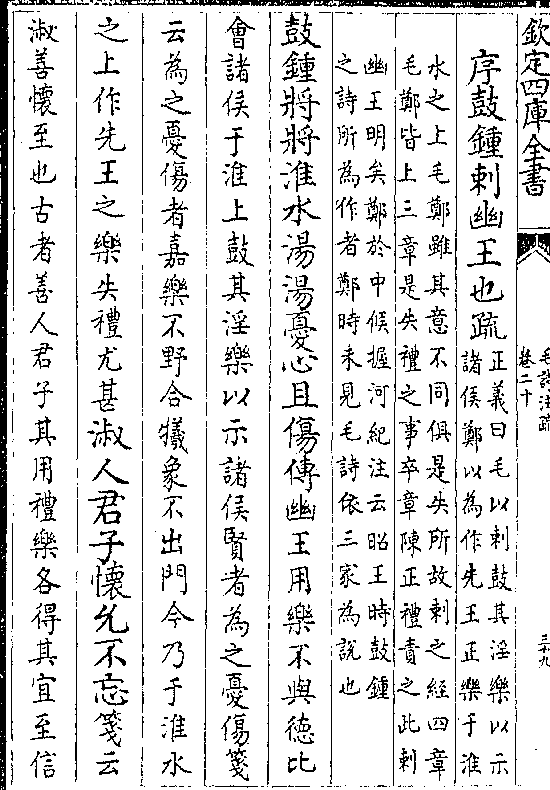 欽定四庫全書
毛詩注疏
卷二十
三十九
序鼓鍾刺幽王也疏
正義曰毛以刺鼓其淫樂以示
諸侯鄭以為作先王正樂于淮
水之上毛鄭雖其意不同俱是失所故刺之經四章
毛鄭皆上三章是失禮之事卒章陳正禮責之此刺
幽王明矣鄭於中候握河紀注云昭王時鼓鍾
之詩所為作者鄭時未見毛詩依三家為說也
鼓鍾將將淮水湯湯憂心且傷傳幽王用樂不與德比
會諸侯于淮上鼓其淫樂以示諸侯賢者為之憂傷箋
云為之憂傷者嘉樂不野合犧象不出門今乃于淮水
之上作先王之樂失禮尤甚淑人君子懷允不忘箋云
淑善懷至也古者善人君子其用禮樂各得其宜至信